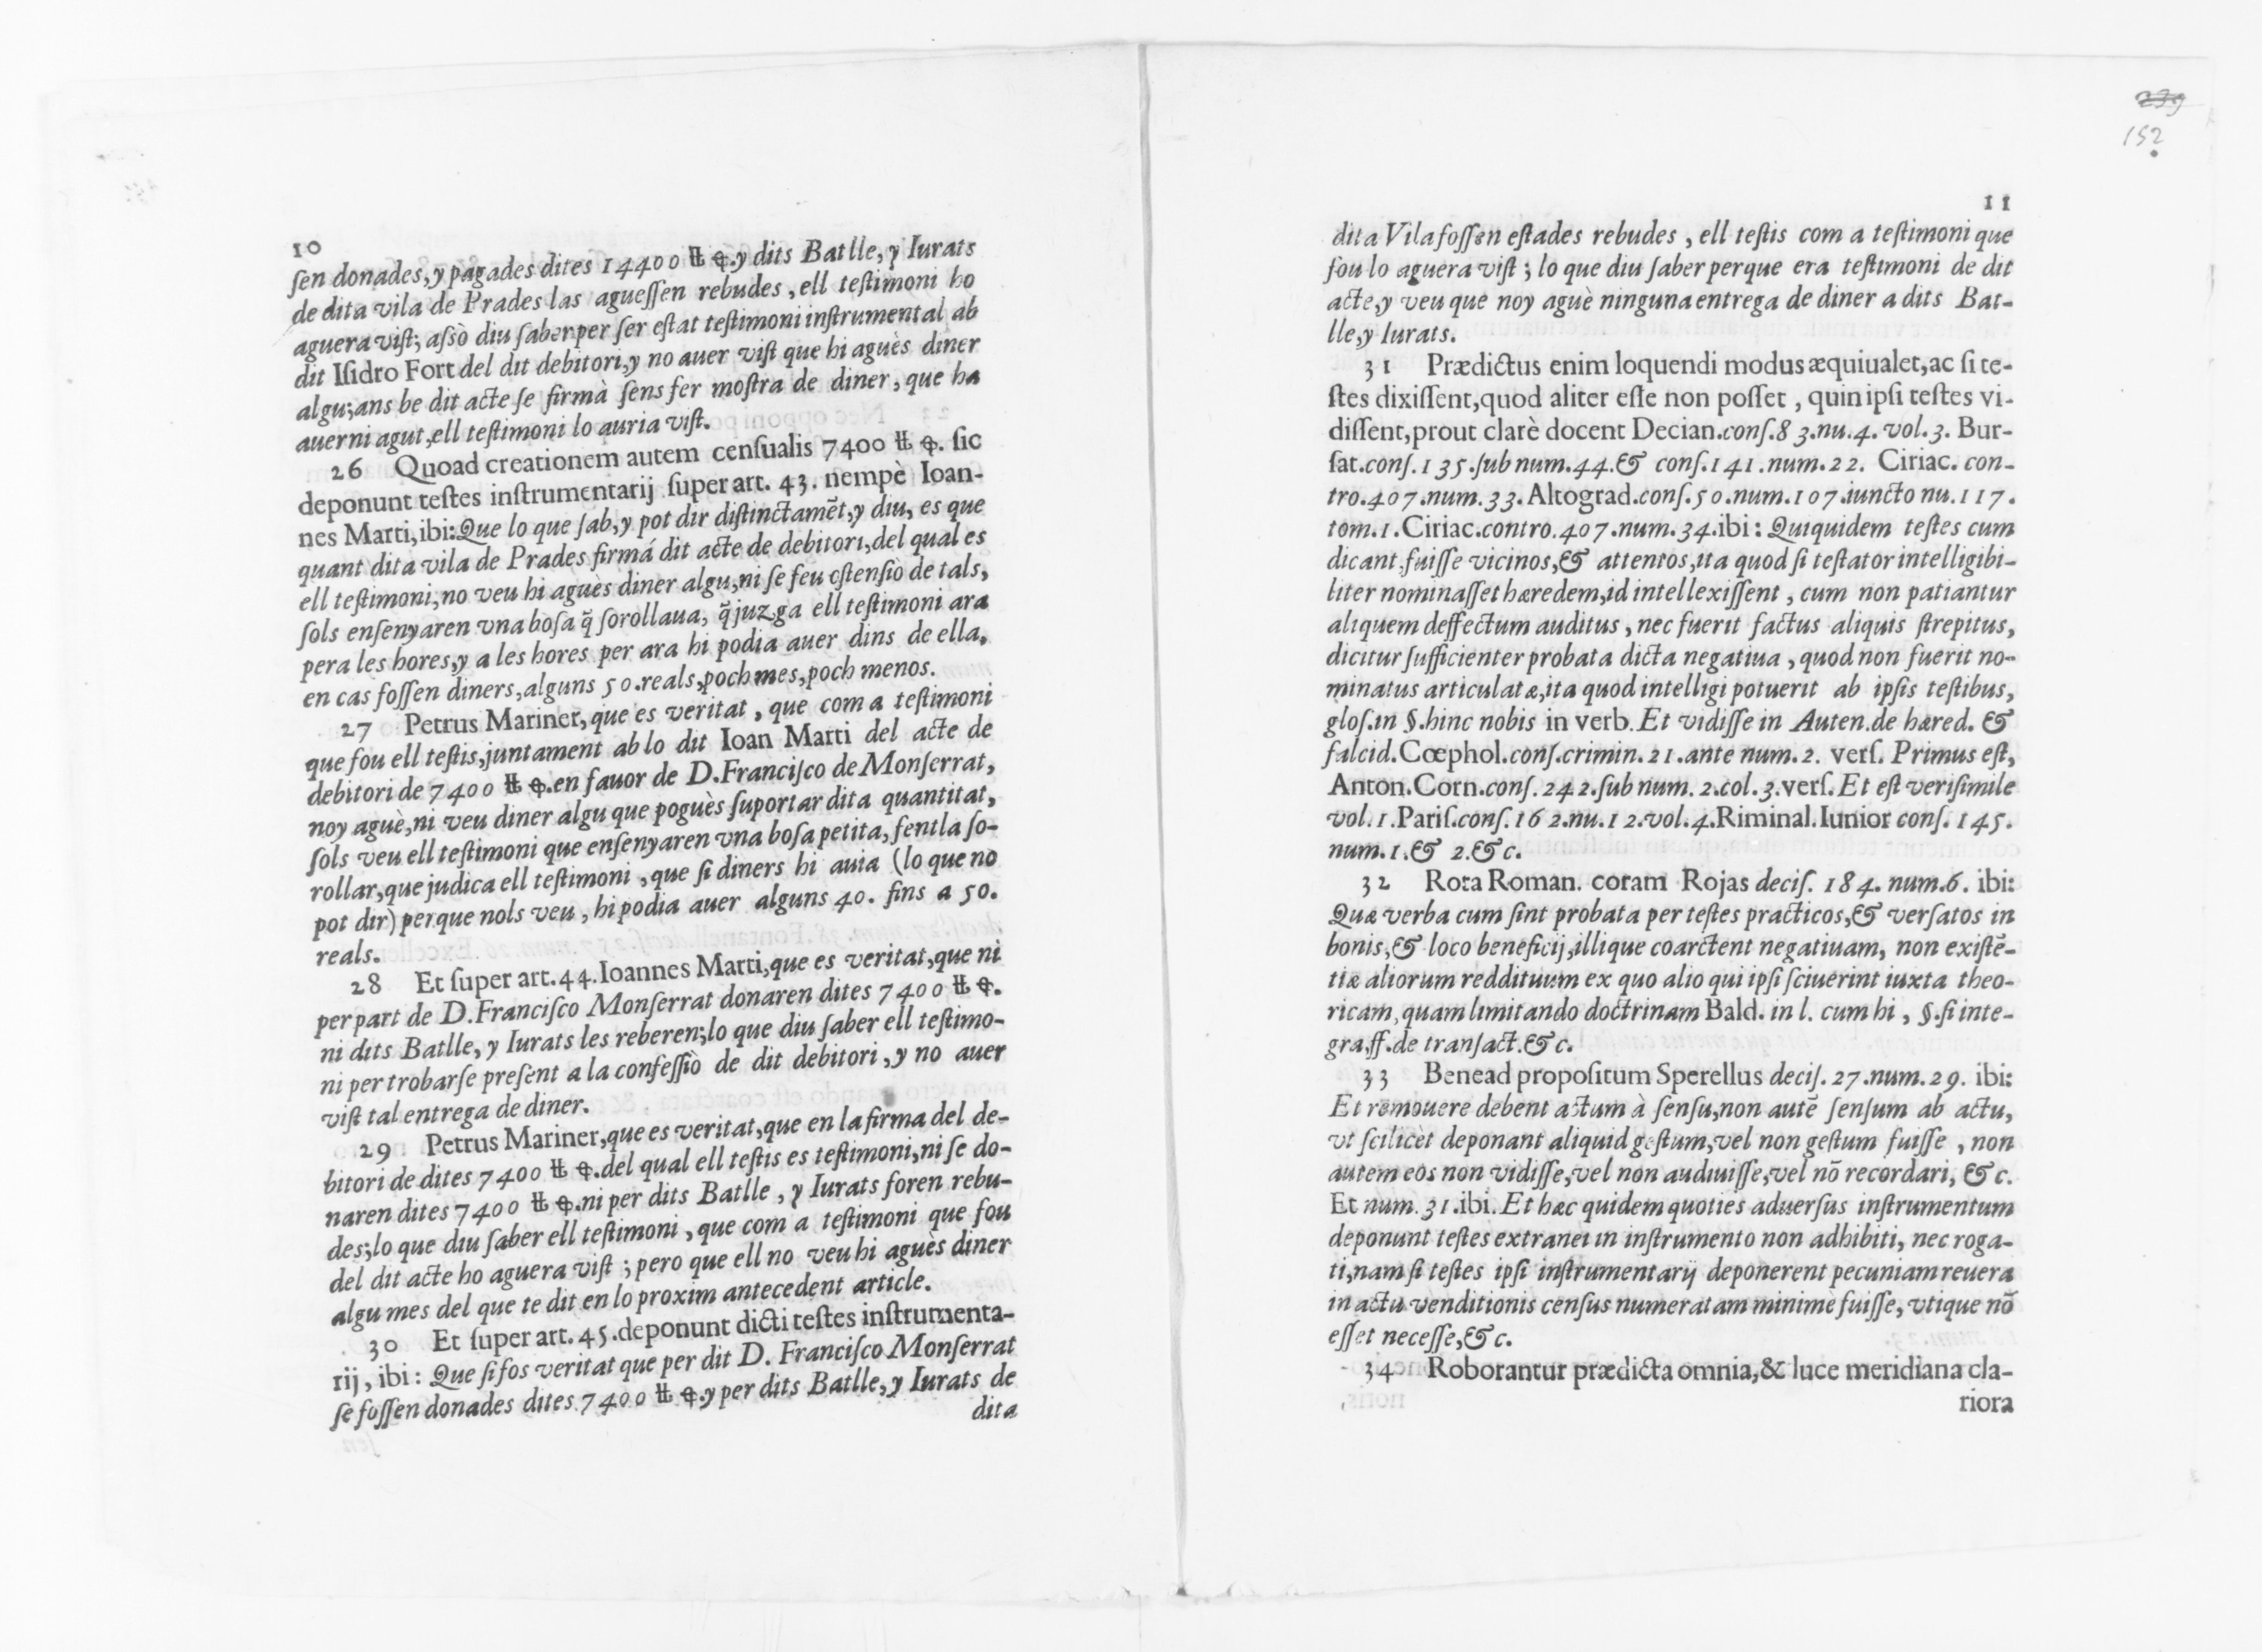 10
ſen donades, y pagades dites 14400 ℔ ꝗ. y dits Batlle, y Iurats
de dita vila de Prades las agueſſen rebudes, ell teſtimoni ho
aguera viſt; aſsò diu ſaber per ſer eſtat teſtimoni inſtrumental ab
dit Iſidro Fort del dit debitori, y no auer viſt que hi aguès diner
algu; ans be dit acte ſe firmà ſens fer moſtra de diner, que ha
auerni agut, ell teſtimoni lo auria viſt.
26 Quoad creationem autem cenſualis 7400 ℔ ꝗ. ſic
deponunt teſtes inſtrumentarij ſuper art. 43. nempè Ioan-
nes Marti, ibi: Que lo que ſab, y pot dir diſtinctamẽt, y diu, es que
quant dita vila de Prades firmá dit acte de debitori, del qual es
ell teſtimoni, no veu hi aguès diner algu, ni ſe feu oſtenſiò de tals,
ſols enſenyaren vna boſa q̃ ſorollaua, q̃ juzga ell teſtimoni ara
pera les hores, y a les hores per ara hi podia auer dins de ella,
en cas foſſen diners, alguns 50. reals, poch mes, poch menos.
27 Petrus Mariner, que es veritat, que com a teſtimoni
que fou ell teſtis, juntament ab lo dit Ioan Marti del acte de
debitori de 7400 ℔ ꝗ. en fauor de D. Franciſco de Monſerrat,
noy aguè, ni veu diner algu que poguès ſuportar dita quantitat,
ſols veu ell teſtimoni que enſenyaren vna boſa petita, fentla ſo-
rollar, que judica ell teſtimoni, que ſi diners hi auia (lo que no
pot dir) perque nols veu, hi podia auer alguns 40. fins a 50.
reals.
28 Et ſuper art. 44. Ioannes Marti, que es veritat, que ni
per part de D. Franciſco Monſerrat donaren dites 7400 ℔ ꝗ.
ni dits Batlle, y Iurats les reberen; lo que diu ſaber ell teſtimo-
ni per trobarſe preſent a la confeſſiò de dit debitori, y no auer
viſt tal entrega de diner.
29 Petrus Mariner, que es veritat, que en la firma del de-
bitori de dites 7400 ℔ ꝗ. del qual ell teſtis es teſtimoni, ni ſe do-
naren dites 7400 ℔ ꝗ. ni per dits Batlle, y Iurats foren rebu-
des; lo que diu ſaber ell teſtimoni, que com a teſtimoni que fou
del dit acte ho aguera viſt; pero que ell no veu hi aguès diner
algu mes del que te dit en lo proxim antecedent article.
30 Et ſuper art. 45. deponunt dicti teſtes inſtrumenta-
rij, ibi: Que ſi fos veritat que per dit D. Franciſco Monſerrat
ſe foſſen donades dites 7400 ℔ ꝗ. y per dits Batlle, y Iurats de
dita
239
152
11
dita Vila foſſen eſtades rebudes, ell teſtis com a teſtimoni que
fou lo aguera viſt; lo que diu ſaber perque era teſtimoni de dit
acte, y veu que noy aguè ninguna entrega de diner a dits Bat-
lle, y Iurats.
31 Prædictus enim loquendi modus æquiualet, ac ſi te-
ſtes dixiſſent, quod aliter eſſe non poſſet, quin ipſi teſtes vi-
diſſent, prout clarè docent Decian. conſ. 83. nu. 4. vol. 3. Bur-
ſat. conſ. 135. ſub num. 44. & conſ. 141. num. 22. Ciriac. con-
tro. 407. num. 33. Altograd. conſ. 50. num. 107. iuncto nu. 117.
tom. 1. Ciriac. contro. 407. num. 34. ibi: Quiquidem teſtes cum
dicant fuiſſe vicinos, & attentos, ita quod ſi teſtator intelligibi-
liter nominaſſet hæredem, id intellexiſſent, cum non patiantur
aliquem deffectum auditus, nec fuerit factus aliquis ſtrepitus,
dicitur ſufficienter probata dicta negatiua, quod non fuerit no-
minatus articulatæ, ita quod intelligi potuerit ab ipſis teſtibus,
gloſ. in §. hinc nobis in verb. Et vidiſſe in Auten. de hæred. &
falcid. Cœphol. conſ. crimin. 21. ante num. 2. verſ. Primus eſt,
Anton. Corn. conſ. 242. ſub num. 2. col. 3. verſ. Et eſt veriſimile
vol. 1. Pariſ. conſ. 162. nu. 12. vol. 4. Riminal. Iunior conſ. 145.
num. 1. & 2. &c.
32 Rota Roman. coram Rojas deciſ. 184. num. 6. ibi:
Quæ verba cum ſint probata per teſtes practicos, & verſatos in
bonis, & loco beneficij, illique coarctent negatiuam, non exiſtē-
tiæ aliorum reddituum ex quo alio qui ipſi ſciuerint iuxta theo-
ricam, quam limitando doctrinam Bald. in l. cum hi, §. ſi inte-
gra, ff. de tranſact. &c.
33 Benead propoſitum Sperellus deciſ. 27. num. 29. ibi:
Et remouere debent actum à ſenſu, non autē ſenſum ab actu,
vt ſcilicèt deponant aliquid geſtum, vel non geſtum fuiſſe, non
autem eos non vidiſſe, vel non audiuiſſe, vel nō recordari, &c.
Et num. 31. ibi. Et hæc quidem quoties aduerſus inſtrumentum
deponunt teſtes extranei in inſtrumento non adhibiti, nec roga-
ti, nam ſi teſtes ipſi inſtrumentarij deponerent pecuniam reuera
in actu venditionis cenſus numeratam minimè fuiſſe, vtique nō
eſſet neceſſe, &c.
34 Roborantur prædicta omnia, & luce meridiana cla-
riora